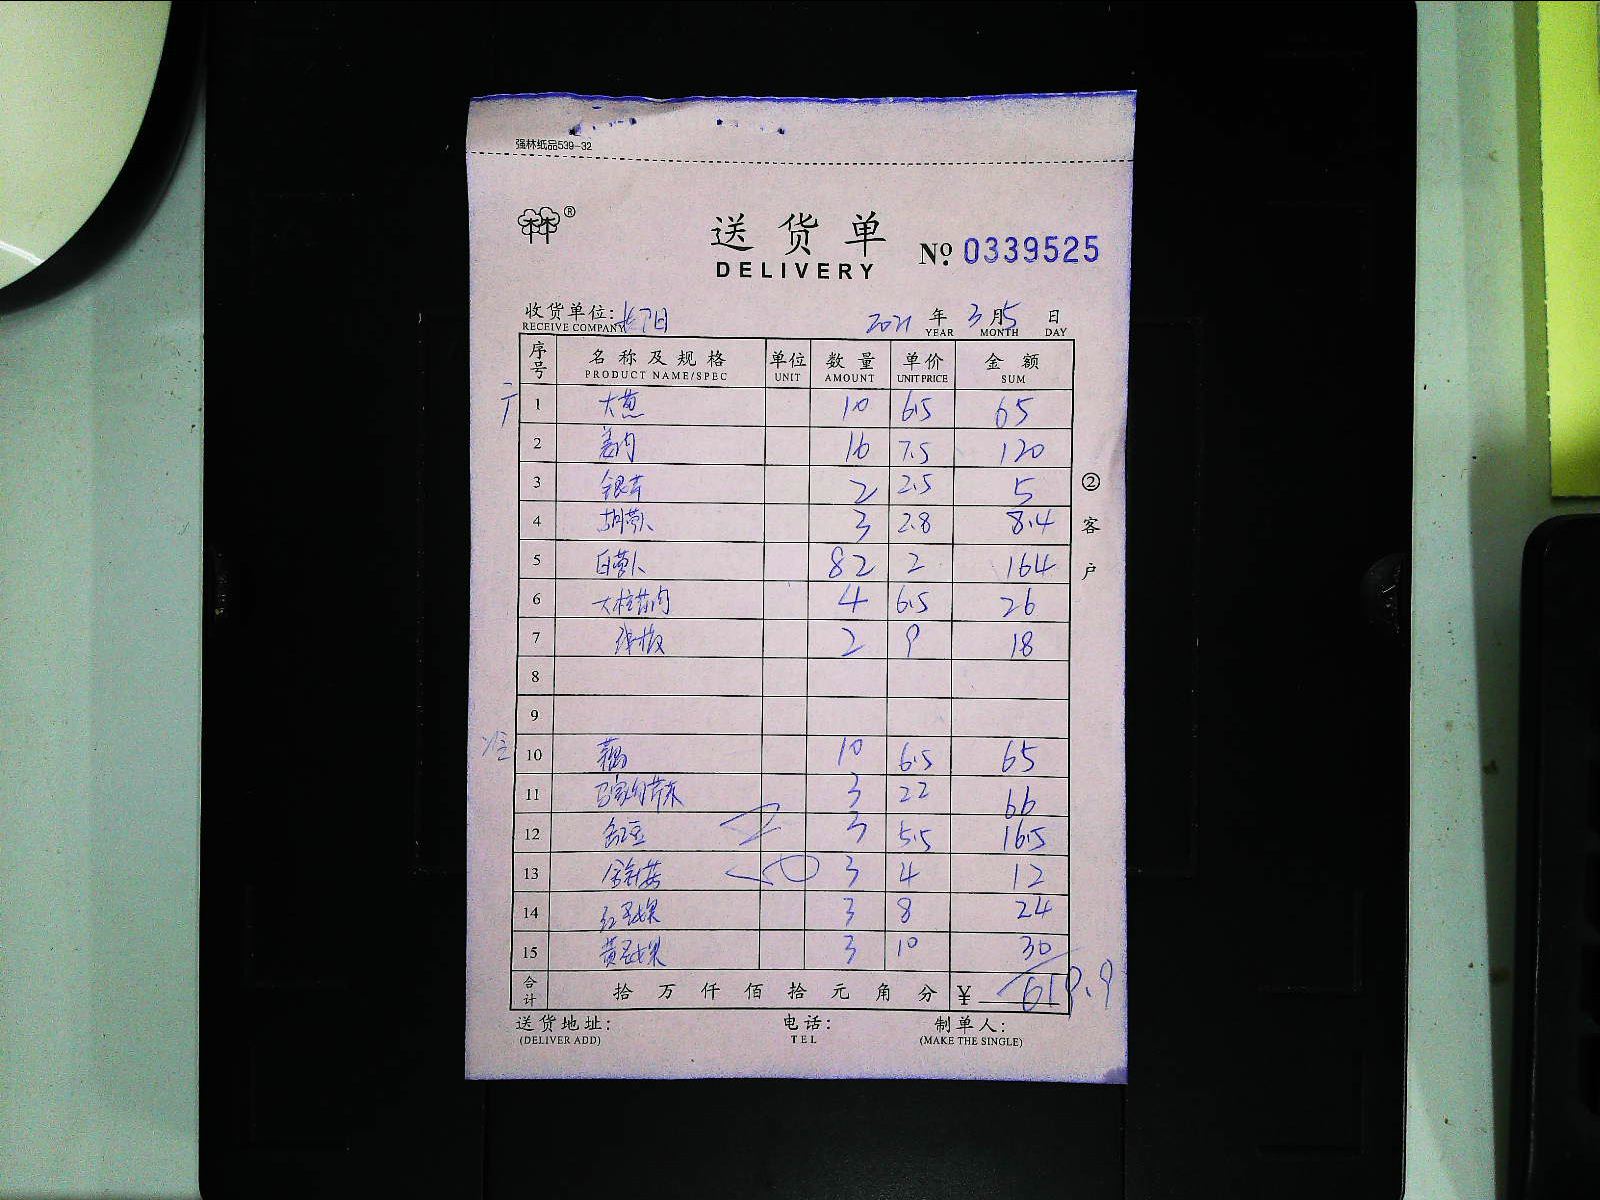 强林纸品539-32
林林®
送货单
DELIVERY
№ 0339525
收货单位: 长阳 2021 年 3 月 5 日
RECEIVE COMPANY YEAR MONTH DAY
序号 名称及规格 单位 数量 单价 金额
PRODUCT NAME/SPEC UNIT AMOUNT UNIT PRICE SUM
1 大葱 10 6.5 65
2 姜肉 16 7.5 120
3 银芽 2 2.5 5
4 胡萝卜 3 2.8 8.4
5 白萝卜 82 2 164
6 4 6.5 26
7 2 9 18
8
9
10 藕 10 6.5 65
11 3 22 66
12 3 5.5 16.5
13 金针菇 3 4 12
14 3 8 24
15 3 10 30
合计 拾 万 仟 佰 拾 元 角 分 ¥ 619.9
送货地址: 电话: 制单人:
(DELIVER ADD) TEL (MAKE THE SINGLE)
②客户